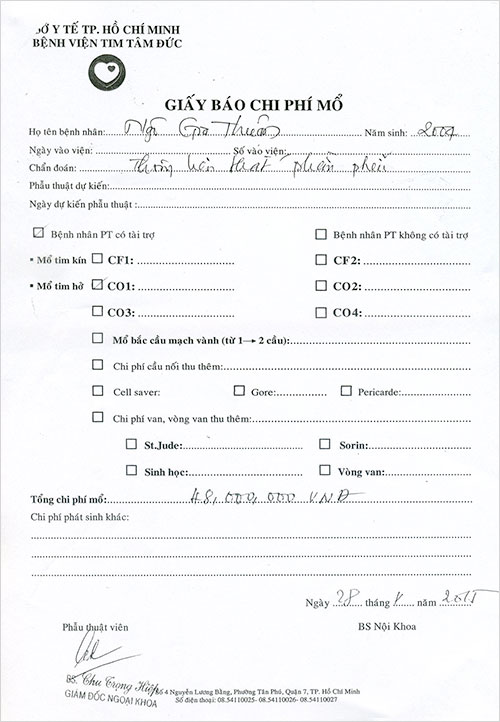 SỞ Y TẾ TP. HỒ CHÍ MINH
BỆNH VIỆN TIM TÂM ĐỨC
GIẤY BÁO CHI PHÍ MỔ
Họ tên bệnh nhân: Ngô Gia Thuận Năm sinh: 2007
Ngày vào viện: Số vào viện:
Chẩn đoán: Thông liên thất phần phễu
Phẫu thuật dự kiến:
Ngày dự kiến phẫu thuật :
Bệnh nhân PT có tài trợ Bệnh nhân PT không có tài trợ
▪ Mổ tim kín CF1: CF2:
▪ Mổ tim hở CO1: CO2:
CO3: CO4:
Mổ bắc cầu mạch vành (từ 1→ 2 cầu):
Chi phí cầu nối thu thêm:
Cell saver: Gore: Pericarde:
Chi phí van, vòng van thu thêm:
St.Jude: Sorin:
Sinh học: Vòng van:
Tổng chi phí mổ: 48,000,000 VNĐ
Chi phí phát sinh khác:
Ngày 28 tháng năm 2015
Phẫu thuật viên BS Nội Khoa
BS. Chu Trọng Hiệp
GIÁM ĐỐC NGOẠI KHOA
4 Nguyễn Lương Bằng, Phường Tân Phú, Quận 7, TP. Hồ Chí Minh
Số điện thoại: 08.54110025- 08.54110026- 08.54110027